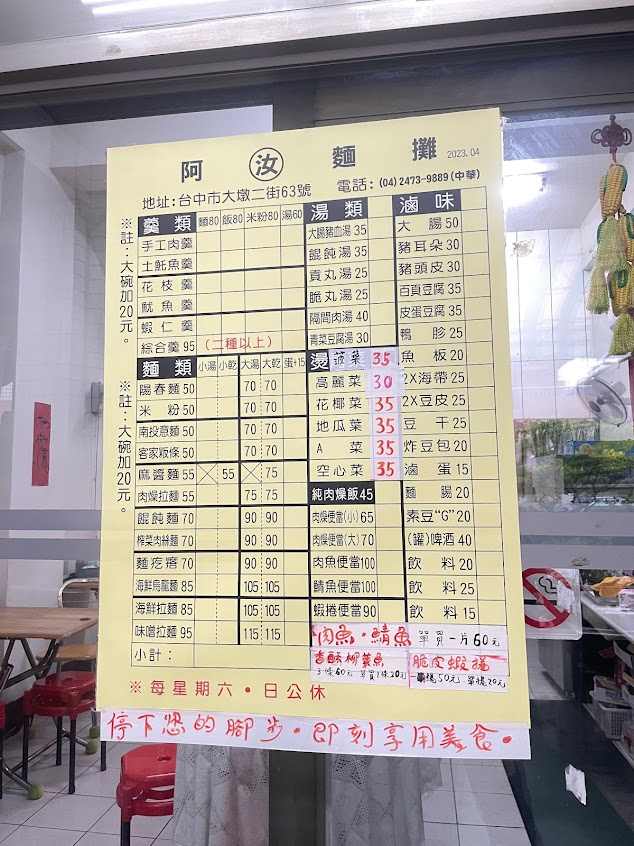 阿汝麵攤 2023.04
地址:台中市大墩二街63號 電話:(04)2473-9889(中華)
※註:大碗加20元。
※註:大碗加20元。
羹類 麵80 飯80 米粉80 湯60
手工肉羹
土魠魚羹
花枝羹
魷魚羹
蝦仁羹
綜合羹 95 (二種以上)
麵類 小湯 小乾 大湯 大乾 蛋+15
陽春麵50 70 70
米粉50 70 70
南投意麵50 70 70
客家粄條50 70 70
麻醬麵55 55 75
肉燥拉麵55 75 75
餛飩麵70 90 90
榨菜肉絲麵70 90 90
麵疙瘩70 90 90
海鮮烏龍麵85 105 105
海鮮拉麵85 105 105
味噌拉麵95 115 115
小計:
湯類
大腸豬血湯35
餛飩湯35
貢丸湯25
脆丸湯25
隔間肉湯40
青菜豆腐湯30
燙 菠菜 35
高麗菜 30
花椰菜 35
地瓜菜 35
A菜 35
空心菜 35
純肉燥飯45
肉燥便當(小)65
肉燥便當(大)70
肉魚便當100
鯖魚便當100
蝦捲便當90
滷味
大腸50
豬耳朵30
豬頭皮30
百頁豆腐35
皮蛋豆腐35
鴨胗25
魚板20
2X海帶25
2X豆皮25
豆干25
炸豆包20
滷蛋15
麵腸20
素豆"G"20
(罐)啤酒40
飲料20
飲料25
飲料15
肉魚・鯖魚 單買一片60元
香酥柳葉魚
3條60元 單買1條20元
脆皮蝦捲
50元 單捲20元
※每星期六・日公休
停下您的腳步・即刻享用美食・